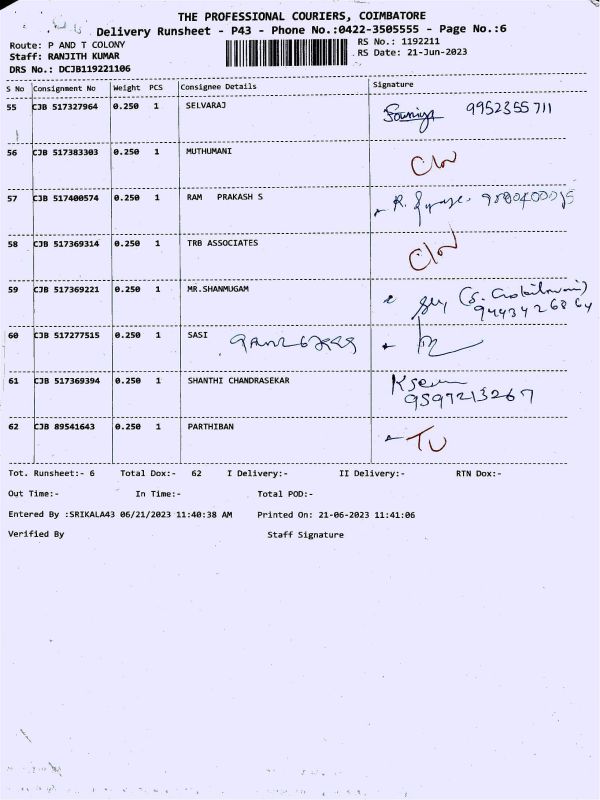 THE PROFESSIONAL COURIERS, COIMBATORE
Delivery Runsheet - P43 - Phone No.:0422-3505555 - Page No.:6
Route: P AND T COLONY
RS No.: 1192211
Staff: RANJITH KUMAR
RS Date: 21-Jun-2023
DRS No.: DCJB119221106
S No Consignment No Weight PCS Consignee Details Signature
55 CJB 517327964 0.250 1 SELVARAJ 9952355711
56 CJB 517383303 0.250 1 MUTHUMANI
57 CJB 517400574 0.250 1 RAM PRAKASH S
58 CJB 517369314 0.250 1 TRB ASSOCIATES
59 CJB 517369221 0.250 1 MR.SHANMUGAM
9443426864
60 CJB 517277515 0.250 1 SASI
61 CJB 517369394 0.250 1 SHANTHI CHANDRASEKAR
9597213267
62 CJB 89541643 0.250 1 PARTHIBAN
Tot. Runsheet:- 6 Total Dox:- 62 I Delivery:- II Delivery:- RTN Dox:-
Out Time:- In Time:- Total POD:-
Entered By :SRIKALA43 06/21/2023 11:40:38 AM Printed On: 21-06-2023 11:41:06
Verified By Staff Signature